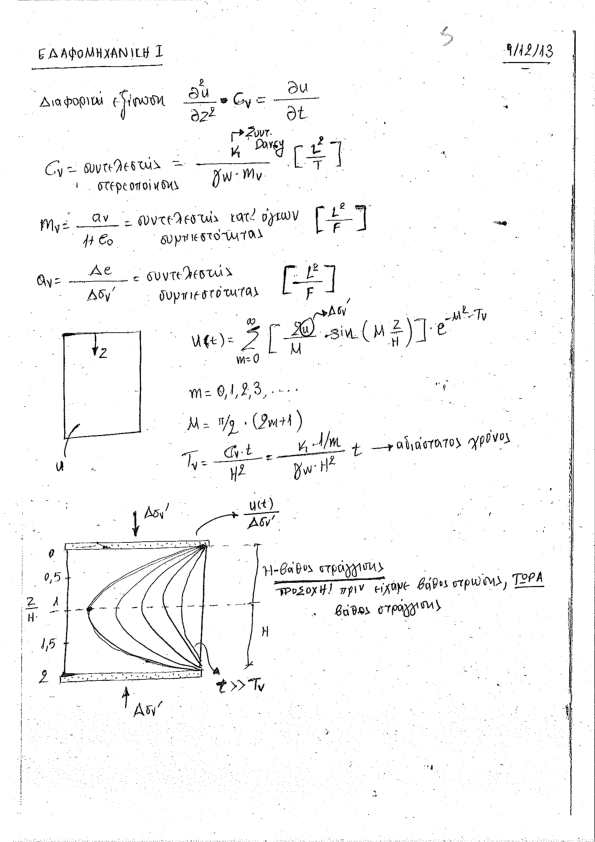 5
ΕΔΑΦΟΜΗΧΑΝΙΚΗ Ι 9/12/13
Διαφορική εξίσωση ∂²u/∂z² • Cv = ∂u/∂t
Cv = συντελεστής στερεοποίησης = k/(γw·mv) [L²/T]
k → Συντ. Darcy
mv = av/(1+e₀) = συντελεστής κατ' όγκων συμπιεστότητας [L²/F]
av = Δe/Δσv' = συντελεστής συμπιεστότητας [L²/F]
z
u
u(t) = Σ [2u/M · sin(M z/H)] · e^(-M²·Tv)
∞
m=0
→ Δσv'
m = 0,1,2,3,....
M = π/2 · (2m+1)
Tv = Cv·t/H² = k·1/m/(γw·H²) t → αδιάστατος χρόνος
Δσv'
u(t)/Δσv'
0
0,5
z/H 1
1,5
2
H
H-βάθος στράγγισης
ΠΡΟΣΟΧΗ! πριν είχαμε βάθος στρώσης, ΤΩΡΑ
βάθος στράγγισης
t >> Tv
Δσv'